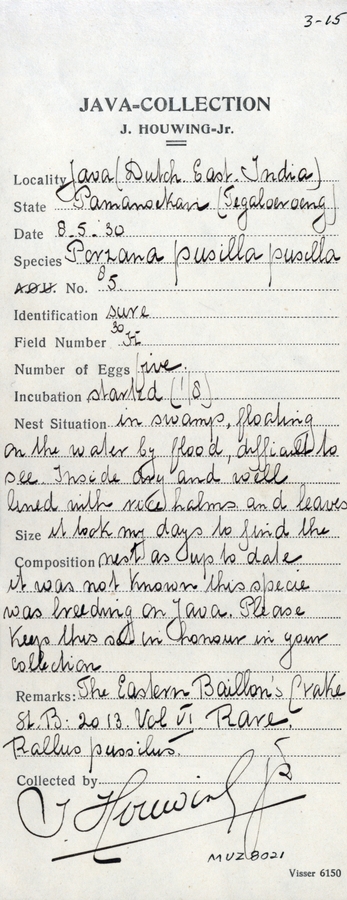 3-15
JAVA-COLLECTION
J. HOUWING-Jr.
Locality Java (Dutch East. India)
State Pamanoekan (Tegaloeroeng)
Date 8.5.'30
Species Porzana pusilla pusilla
A.O.U. No. 8/5
Identification sure
Field Number 30
Number of Eggs five.
Incubation started (1/8)
Nest Situation in swamp, floating
on the water by flood, difficult to
see. Inside dry and well
lined with rice halms and leaves
Size it took my days to find the
Composition nest as up to date
it was not known this specie
was breeding on Java. Please
keep this set in honour in your
collection
Remarks: The Eastern Baillon's Crake
St. B: 2013. Vol VI. Rare.
Rallus pussilus.
Collected by
J. Houwing Jr
MVZ 8021
Visser 6150